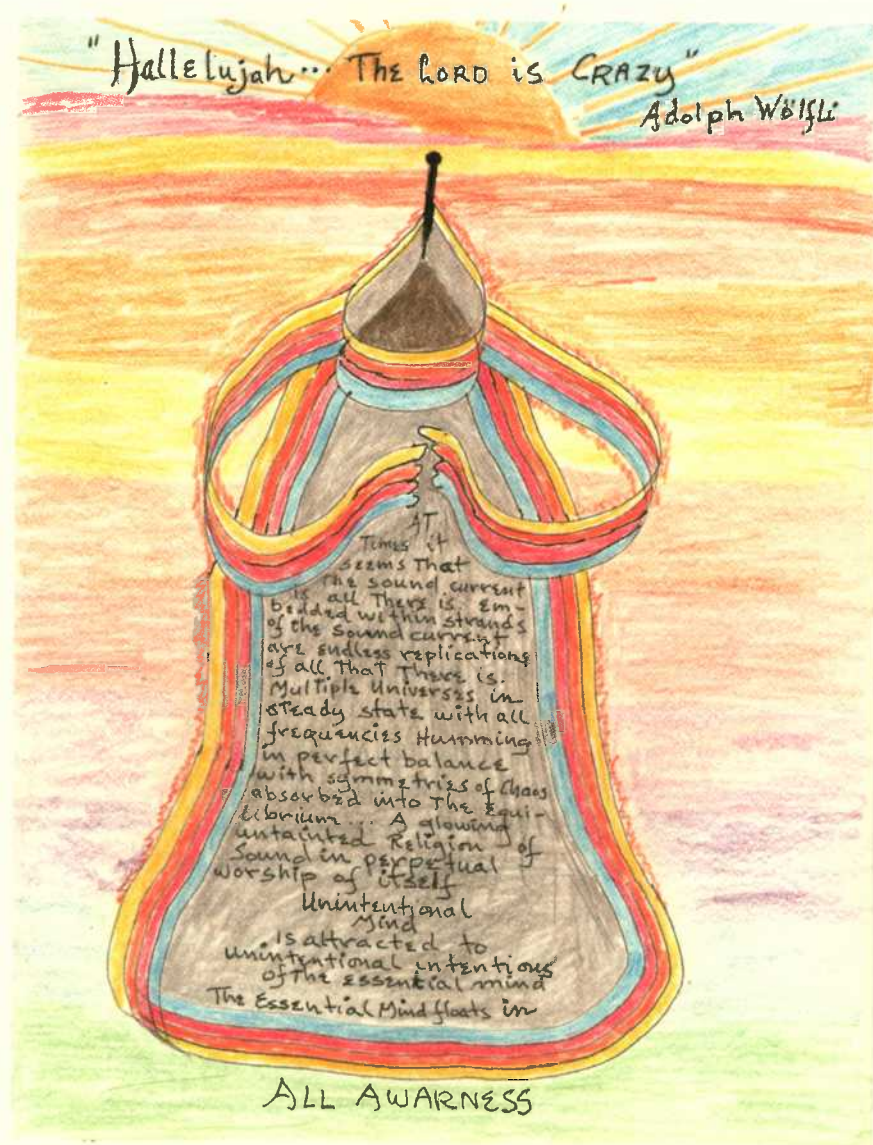 "Hallelujah... The Lord is Crazy"
Adolph Wölfli
AT
Times it
seems That
The sound current
is all There is. Em-
bedded within strands
of the sound current
are endless replications
of all That There is.
Multiple Universes in
steady state with all
frequencies Humming
in perfect balance
with symmetries of Chaos
absorbed into The Equi-
librium... A glowing
untainted Religion of
Sound in perpetual
worship of itself
Unintentional
Mind
is attracted to
unintentional intentions
of The essential mind
The Essential Mind floats in
ALL AWARNESS